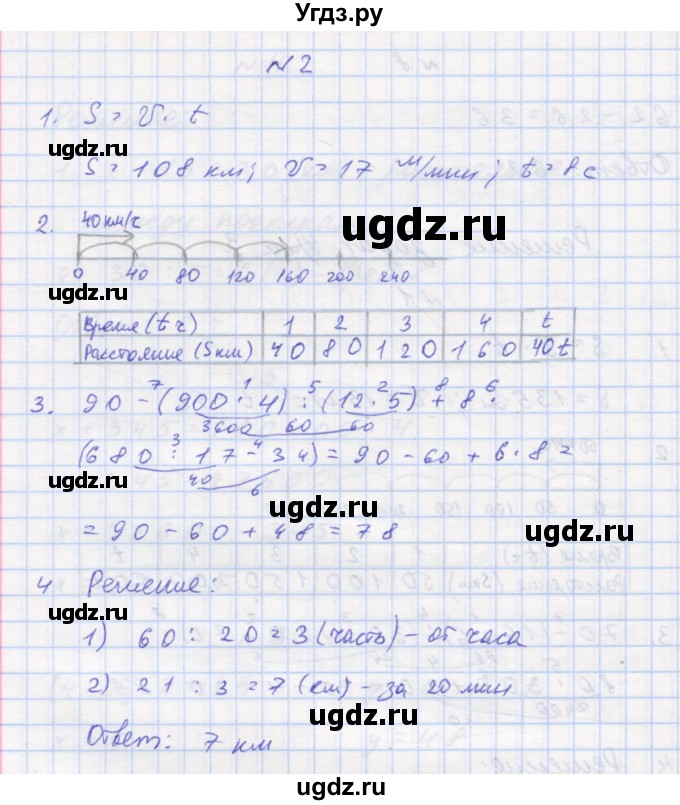 Угдз.ру
№2
1. S = V · t
ugdz.ru
S = 108 км; V = 17 м/мин; t = 8 с
2. 40 км/ч
ugdz.ru
0 40 80 120 160 200 240
ugdz.ru
Время (t ч) 1 2 3 4 t
Расстояние (S км) 40 80 120 160 40t
7 1 5 2 8 6
3. 90 - (900 · 4) : (12 · 5) + 8 ·
3600 60 60
ugdz.ru
3 4
(680 : 17 - 34) = 90 - 60 + 6 · 8 =
40 6
= 90 - 60 + 48 = 78
ugdz.ru
4 Решение:
ugdz.ru
1) 60 : 20 = 3 (часть) - от часа
2) 21 : 3 = 7 (км) - за 20 мин
ugdz.ru
Ответ: 7 км
ugdz.ru
ugdz.ru